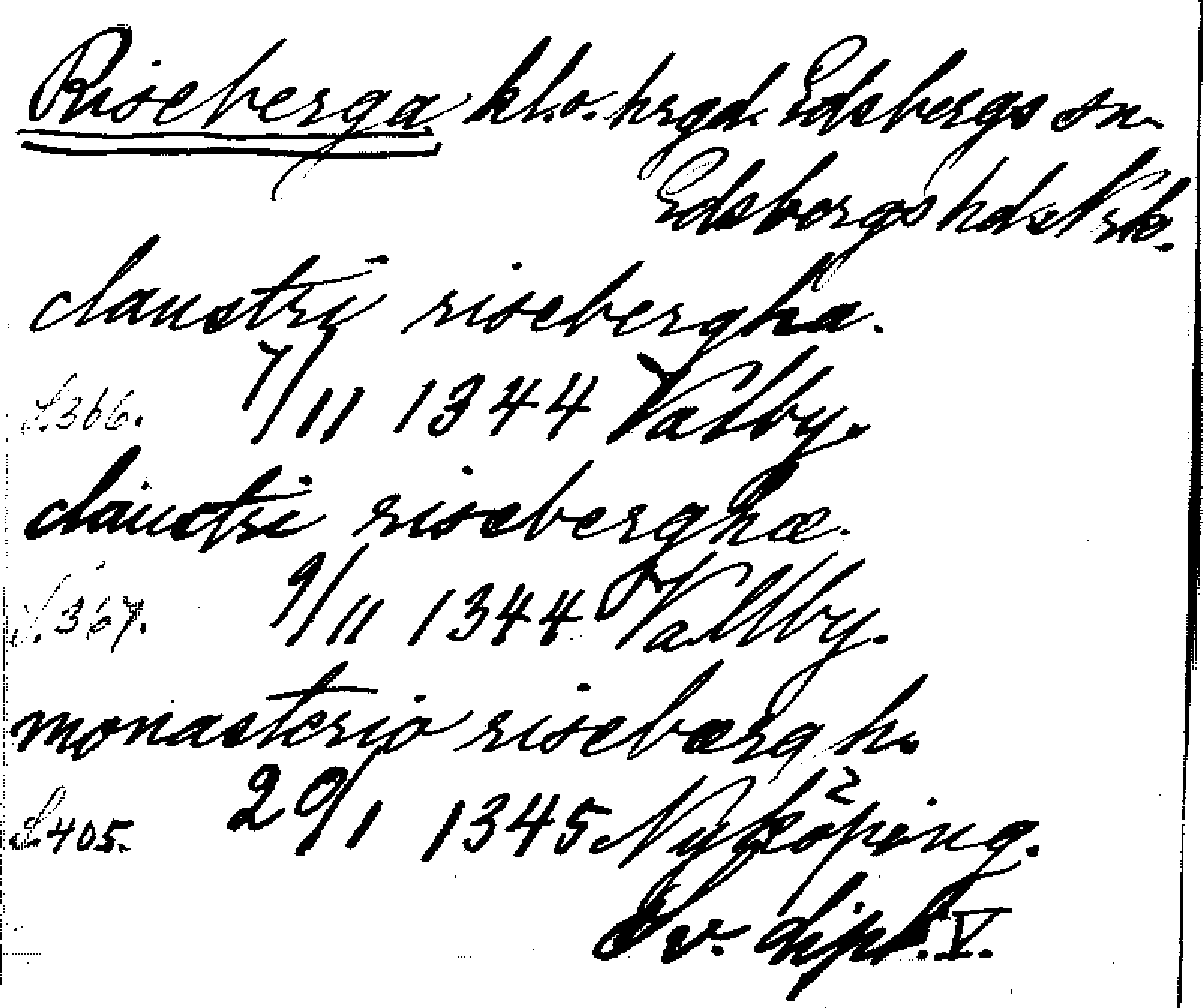 Riseberga klo. hrgd. Edsbergs sn.
Edsbergs hds Nrk.
claustri risebergha.
S. 366. 7/11 1344 Valby.
claustri riseberghæ.
S. 367. 9/11 1344 Vallby.
monasterio risebærgh.
S. 405. 20/1 1345 Nyköping.
Sv. dipl. V.